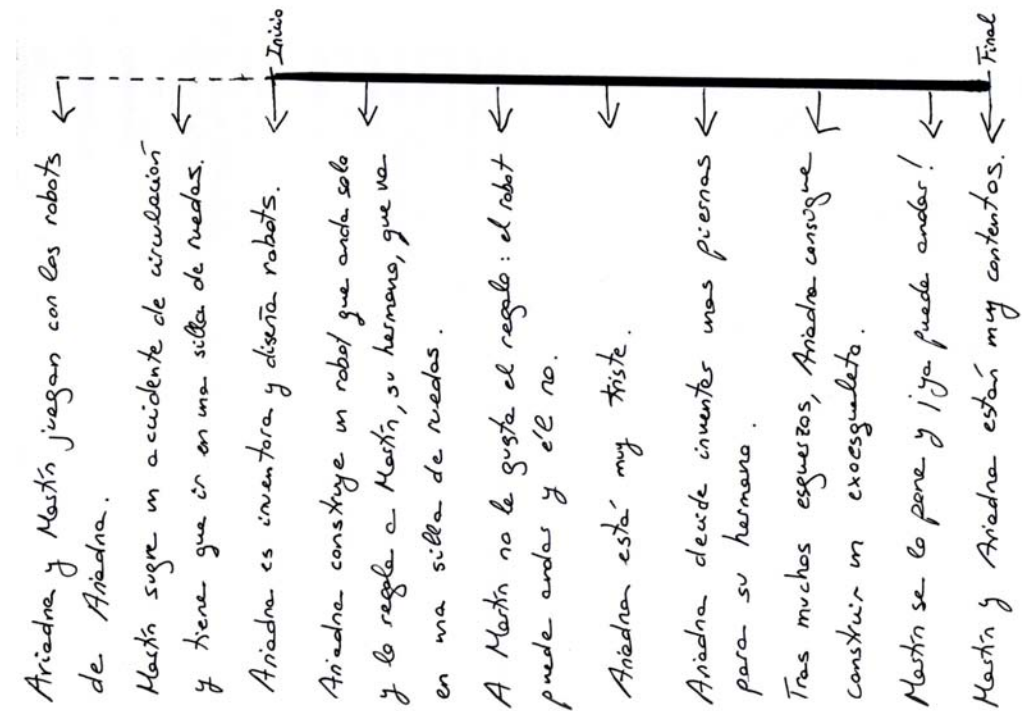 Inicio
Final
Ariadna y Martín juegan con los robots
de Ariadna.
Martín sufre un accidente de circulación
y tiene que ir en una silla de ruedas.
Ariadna es inventora y diseña robots.
Ariadna construye un robot que anda solo
y lo regala a Martín, su hermano, que va
en una silla de ruedas.
A Martín no le gusta el regalo: el robot
puede andar y él no.
Ariadna está muy triste.
Ariadna decide inventar unas piernas
para su hermano.
Tras muchos esfuerzos, Ariadna consigue
construir un exoesqueleto.
Martín se lo pone y ¡ya puede andar!
Martín y Ariadna están muy contentos.